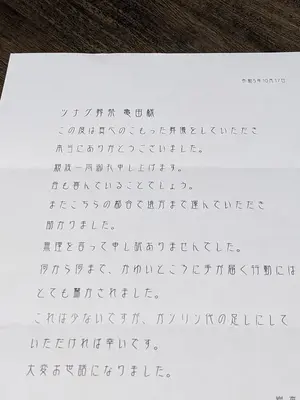 令和5年10月17日
ツナグ葬祭 奥田様
この度は真心のこもった葬儀をしていただき
本当にありがとうございました。
親族一同御礼申し上げます。
母も喜んでいることでしょう。
またこちらの都合で遠方まで運んでいただき
助かりました。
無理を言って申し訳ありませんでした。
何から何まで、かゆいところに手が届く行動には
とても驚かされました。
これは少ないですが、ガソリン代の足しにして
いただければ幸いです。
大変お世話になりました。